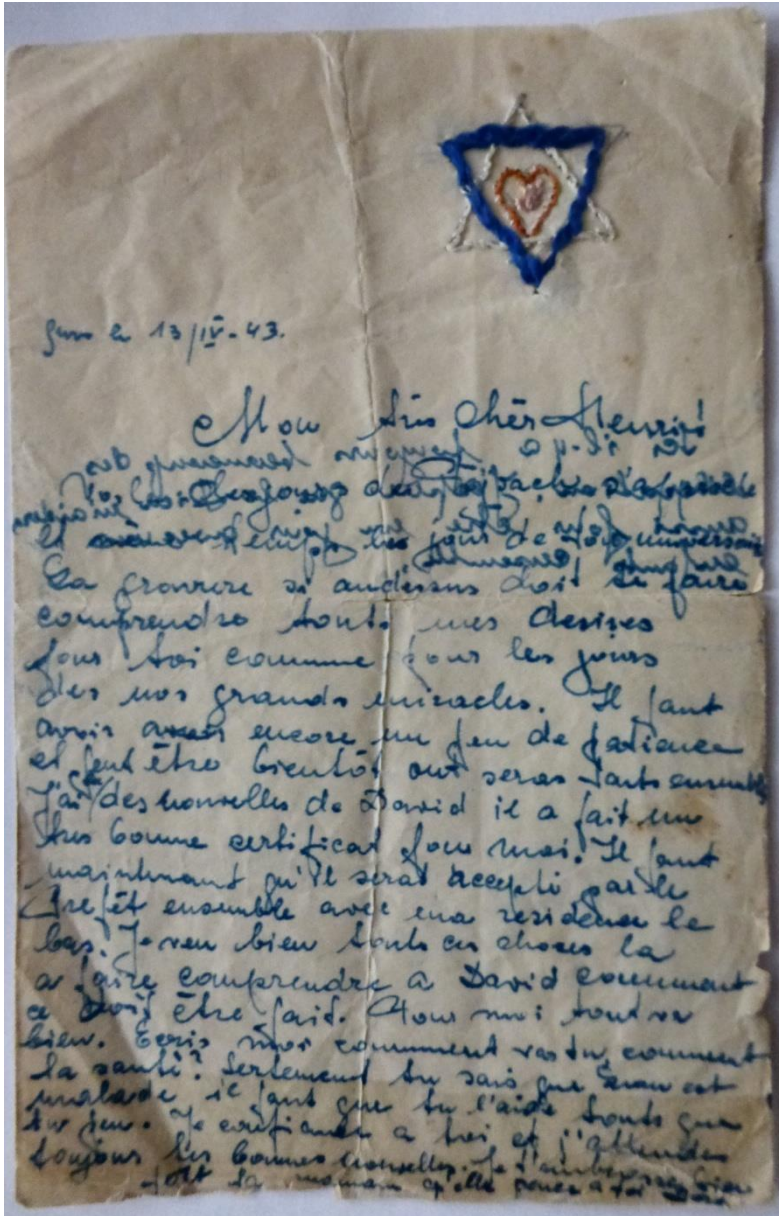 le 13/IV-43.
Mon très Chèr Henri!
les jours de
et temps les jour de
La gravure si audessus doit te faire
comprendre touts mes desires
pour toi comme pour les jours
des nos grands miracles. Il faut
avoir encore un peu de patience
et peut être bientôt ont seras touts ensemble
J'ai des nouvelles de David il a fait une
tres bonne certificat pour moi. Il faut
maintnant qu'il serat accepti par le
Prefêt ensemble avec ma residence la
bas. Je veu bien touts ces choses la
a faire comprendre a David comment
ce doit être fait. Pour moi tout va
bien. Ecris moi comment vas tu, comment
la santé? Sertement tu sais que est
malade il faut que tu l'aide touts que
tu peu. Je confiance a toi et j'attendes
toujours les bonnes nouvelles. Je t'embrasse bien
fort ta maman qu'elle pense a toi